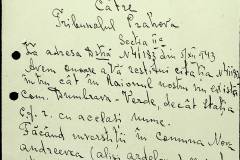 Către
Tribunalul Prahova
Secția II-a
La adresa Dstră N° 41183 din 5/XII 943
Avem onoare a vă restitui citația N° 41183
întru cât în Raionul nostru nu există
com. Dumbrava-Verde, decât Stația
c.f.r. cu acelaș nume.
Făcând investiții în comuna Nou
andreevca